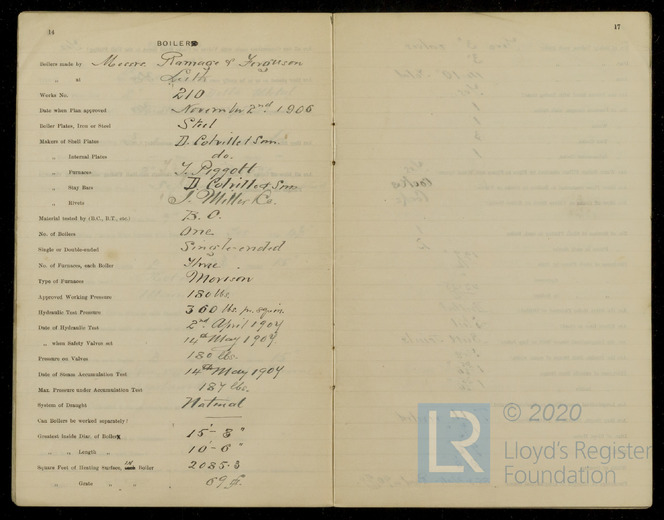 14
BOILERS
Boilers made by Messrs. Ramage & Ferguson
„ at Leith
Works No. 210
Date when Plan approved November 2nd 1906
Boiler Plates, Iron or Steel Steel
Makers of Shell Plates D. Colville & Sons
„ Internal Plates do.
„ Furnaces J. Piggott
„ Stay Bars D. Colville & Sons
„ Rivets J. Miller & Co.
Material tested by (B.C., B.T., etc.) B.C.
No. of Boilers One
Single or Double-ended Single-ended
No. of Furnaces, each Boiler Three
Type of Furnaces Morison
Approved Working Pressure 180 lbs.
Hydraulic Test Pressure 360 lbs. pr. sq. in.
Date of Hydraulic Test 2nd April 1907
„ when Safety Valves set 14th May 1907
Pressure on Valves 180 lbs.
Date of Steam Accumulation Test 14th May 1907
Max. Pressure under Accumulation Test 187 lbs.
System of Draught Natural
Can Boilers be worked separately?
Greatest Inside Diar. of Boiler 15'-3"
„ „ Length „ 10'-6"
Square Feet of Heating Surface, in Boiler 2085.3
„ Grate „ „
17
LR
© 2020
Lloyd's Register
Foundation